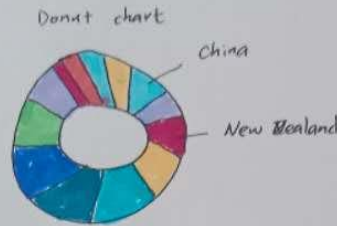 Donut chart
China
New Zealand